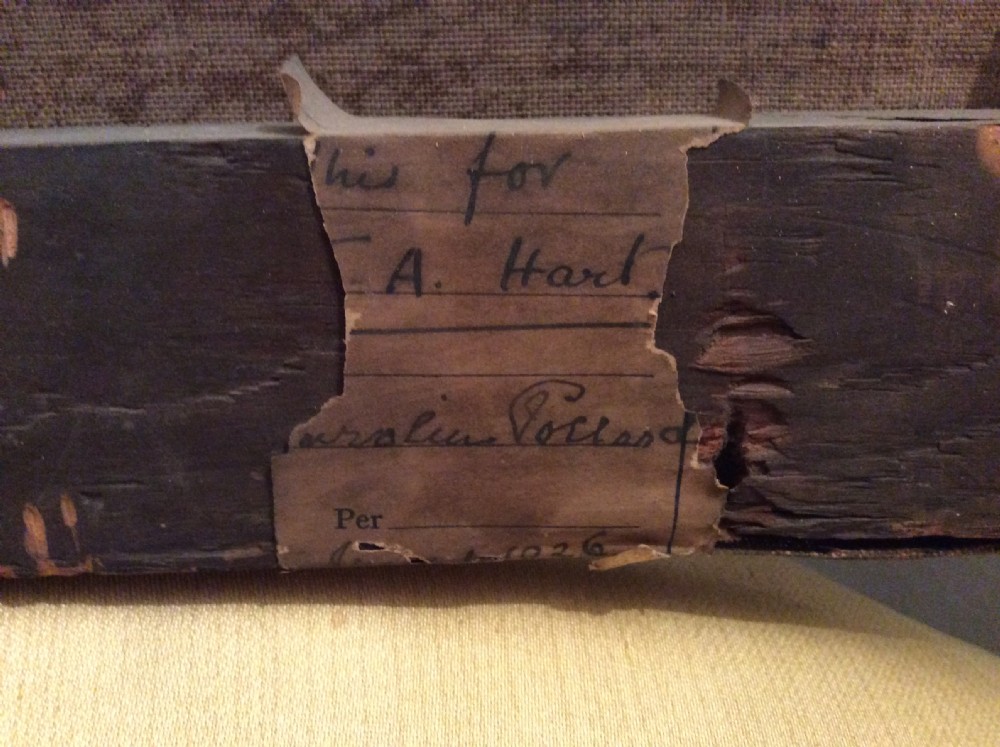 his for
A. Hart.
aroline Pollard
Per
1926